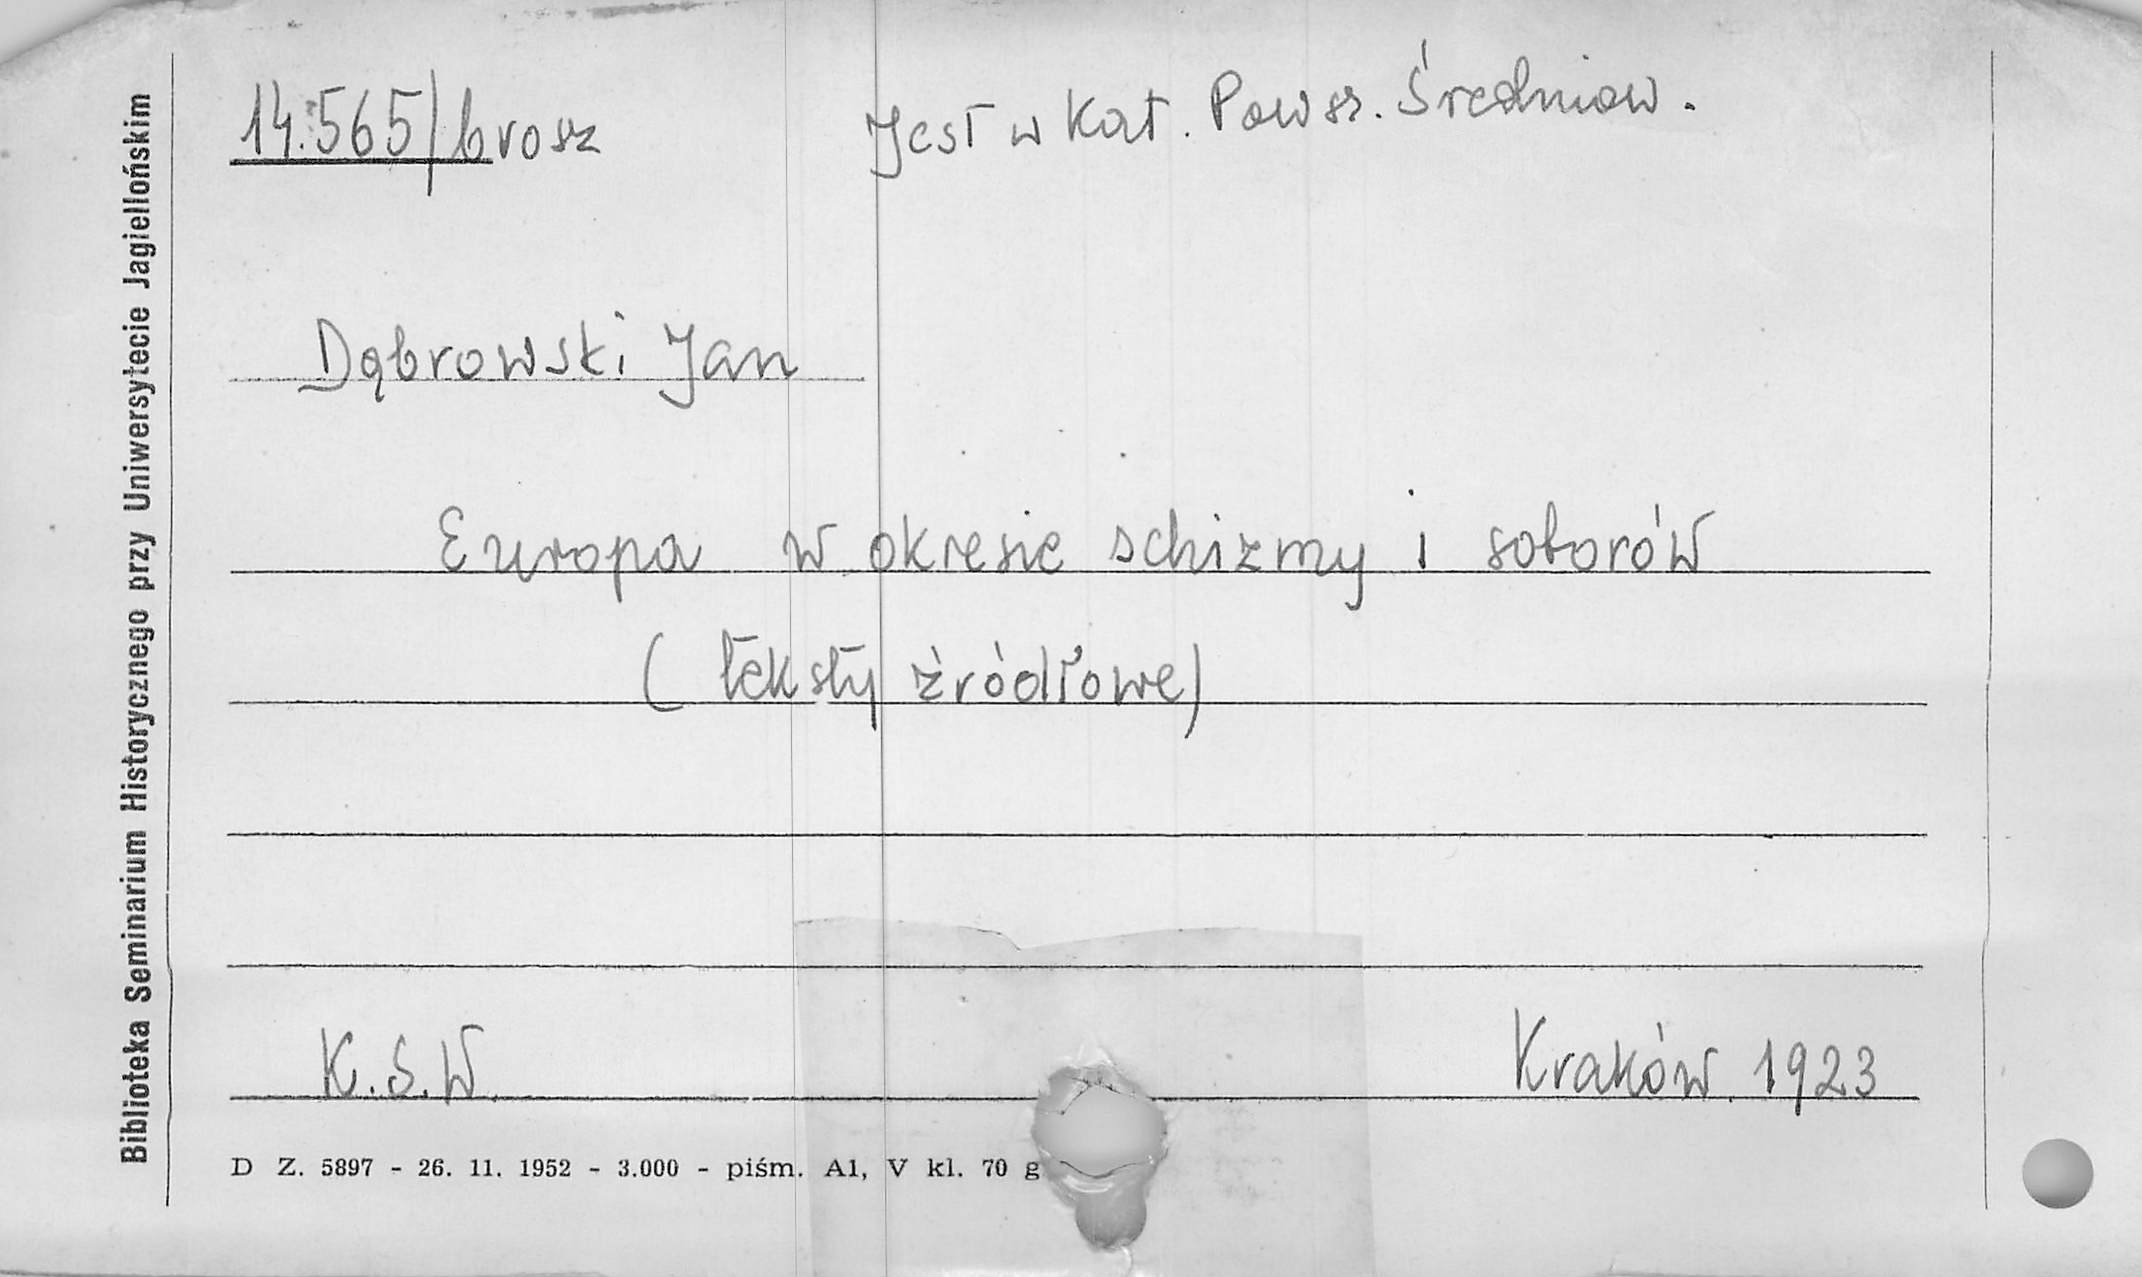 14.565/brosz
Jest w Kat. Powsz. Średniow.
Dąbrowski Jan
Europa w okresie schizmy i soborów
(teksty źródłowe)
K.S.W.
Kraków 1923
D Z. 5897 - 26. 11. 1952 - 3.000 - piśm. A1, V kl. 70 g
Biblioteka Seminarium Historycznego przy Uniwersytecie Jagiellońskim